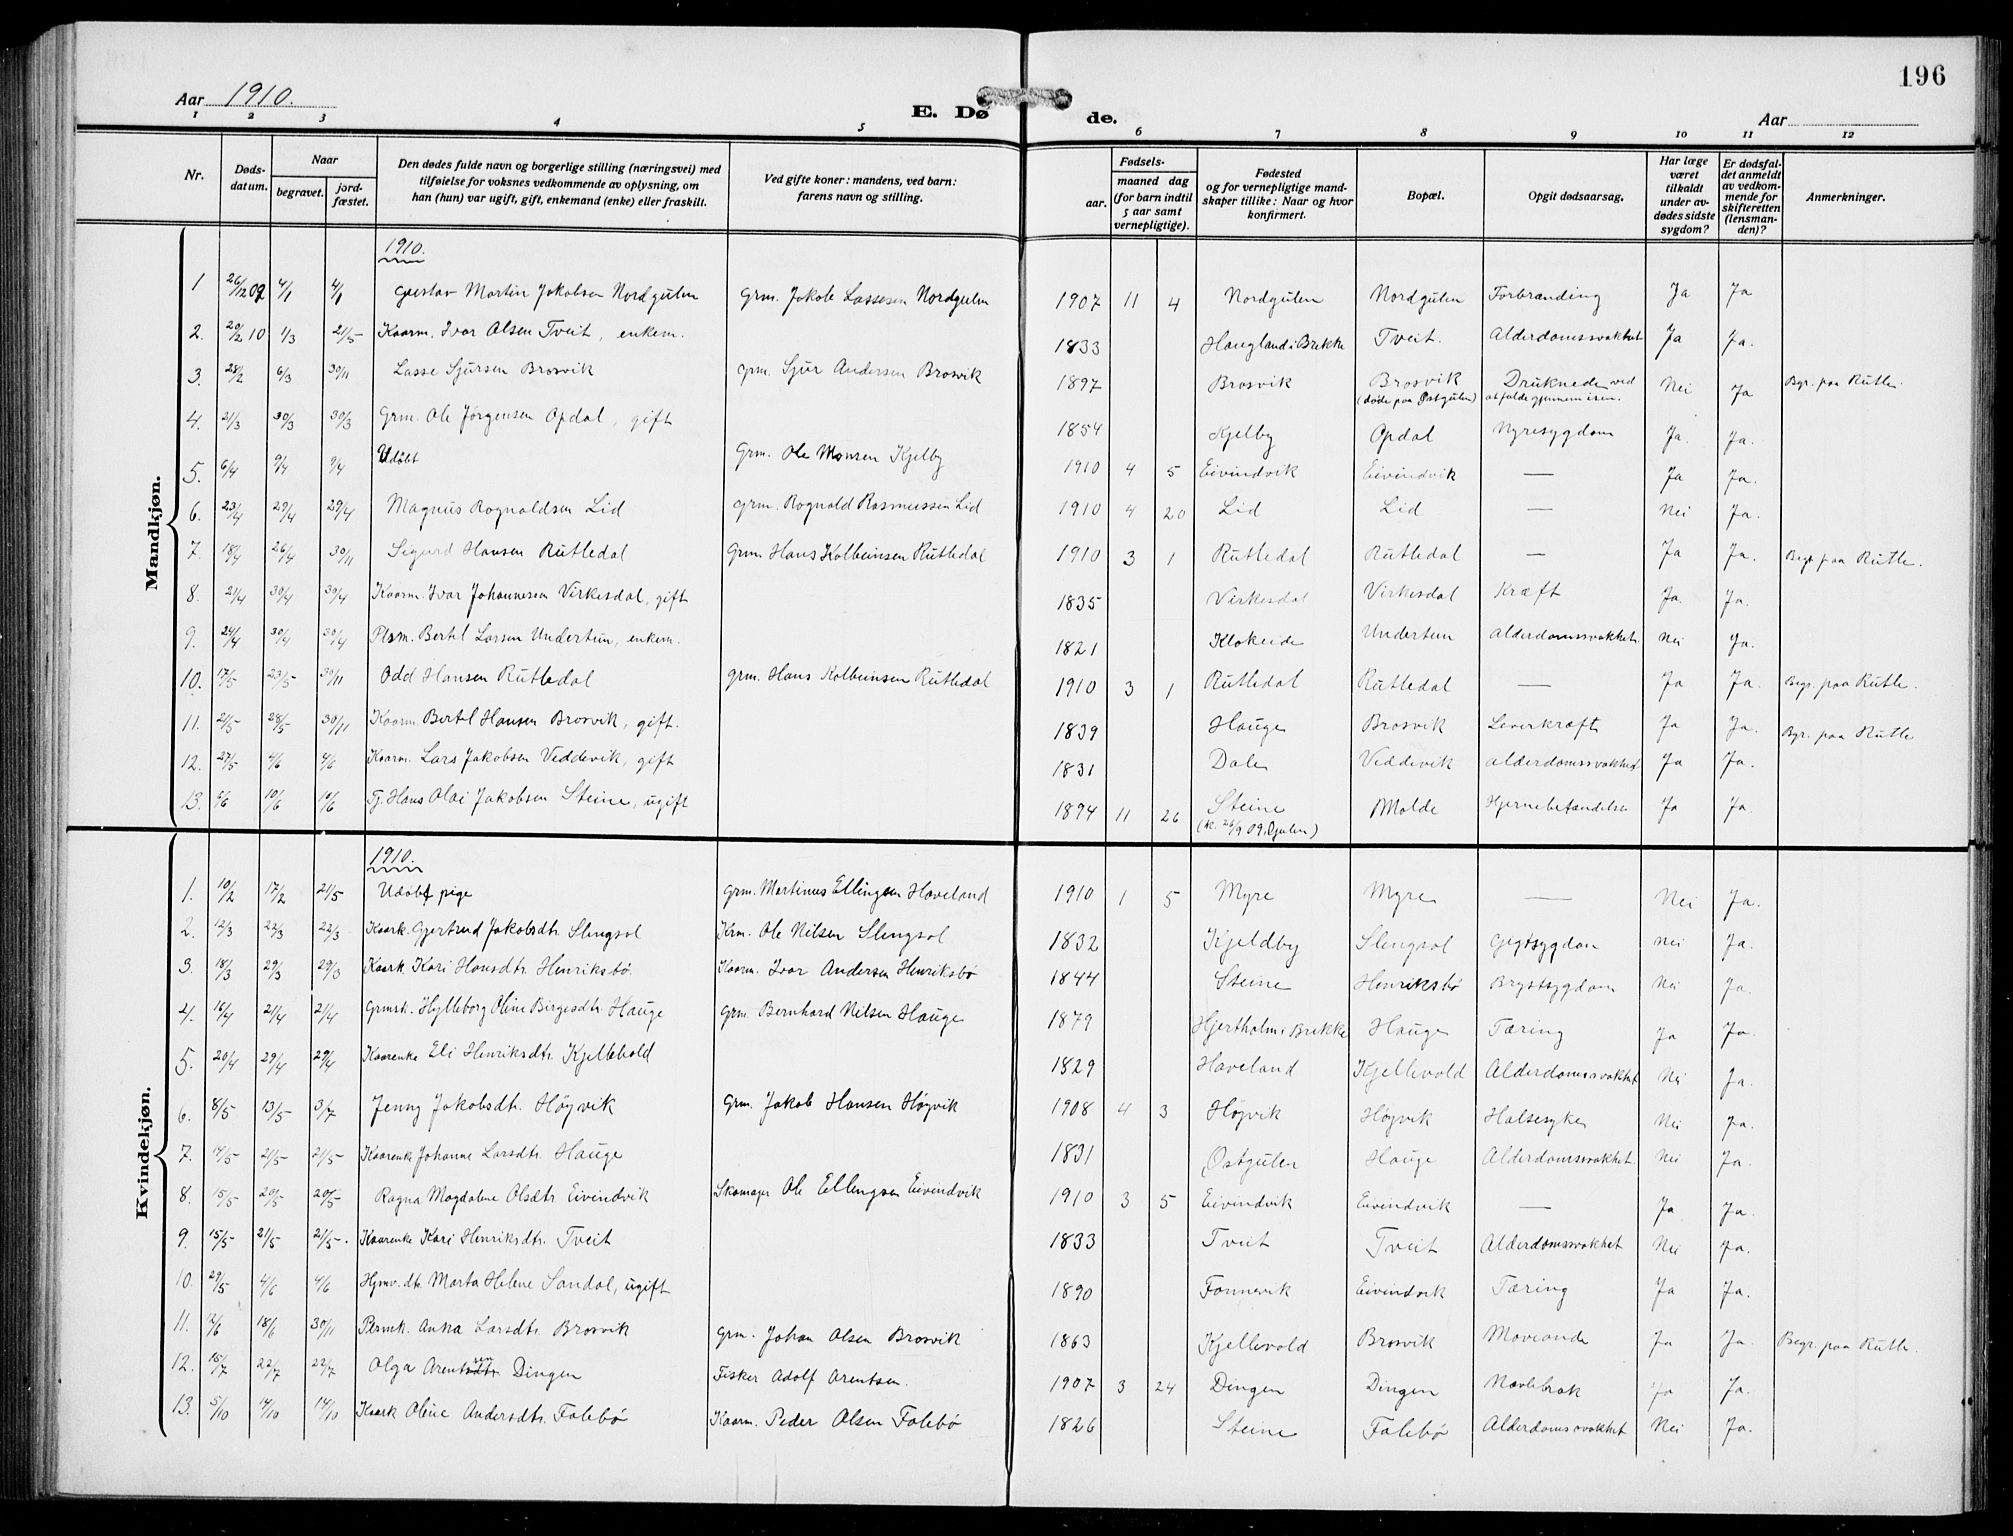 196
Aar 1910.
E. Døde.
Aar
1 2 3 4 5 6 7 8 9 10 11 12
Nr.
Døds-datum.
Naar
begravet.
jord-fæstet.
Den dødes fulde navn og borgerlige stilling (næringsvei) med tilføielse for voksnes vedkommende av oplysning, om han (hun) var ugift, gift, enkemand (enke) eller fraskilt.
Ved gifte koner: mandens, ved barn: farens navn og stilling.
Fødsels-
aar.
maaned dag
(for barn indtil 5 aar samt vernepligtige).
Fødested og for vernepligtige mandskaper tillike: Naar og hvor konfirmert.
Bopæl.
Opgit dødsaarsag.
Har læge været tilkaldt under avdødes sidste sygdom?
Er dødsfaldet anmeldt av vedkommende for skifteretten (lensmanden)?
Anmerkninger.
Mandkjøn.
1910.
1 26/12 09 4/1 4/1 Gustav Martin Jakobsen Nordgulen Grm. Jakob Lassesen Nordgulen 1907 11 4 Nordgulen Nordgulen Forbrænding Ja Ja
2. 20/2 10 1/3 21/5 Kaarm. Ivar Olsen Tveit, enkem. 1833 Haugland i Brekke Tveit. Alderdomssvakhet Ja Ja.
3. 28/2 6/3 30/11 Lasse Sjursen Brosvik grm. Sjur Andersen Brosvik 1897 Brosvik Brosvik (døde paa Østgulen) Druknede ved at falde gjennem isen. Nei Ja Bgr. paa Rutle.
4. 21/3 30/3 30/3 Grm. Ole Jørgensen Opdal, gift 1854 Kjelby Opdal Nyresygdom Ja. Ja.
5. 6/4 9/4 9/4 Udøbt Grm. Ole Monsen Kjelby 1910 4 5 Eivindvik Eivindvik — Ja Ja.
6. 23/4 29/4 29/4 Magnus Rognaldsen Lid grm. Rognald Rasmussen Lid 1910 4 20 Lid Lid — Nei Ja.
7. 18/4 26/4 30/11 Sigurd Hansen Rutledal Grm. Hans Kolbeinsen Rutledal 1910 3 1 Rutledal Rutledal — Ja Ja. Begr. paa Rutle.
8. 21/4 30/4 30/4 Kaarm. Ivar Johannesen Virkesdal, gift 1835 Virkesdal Virkesdal Kræft Ja. Ja.
9. 24/4 30/4 30/4 Plsm. Bertel Larsen Undertun, enkem. 1821 Klokeide Undertun Alderdomssvakhet. Nei Ja.
10. 17/5 23/5 30/11 Odd Hansen Rutledal grm. Hans Kolbeinsen Rutledal 1910 3 1 Rutledal Rutledal — Ja Ja. Begr. paa Rutle.
11. 21/5 28/5 30/11 Kaarm. Bertel Hansen Brosvik, gift. 1839 Hauge Brosvik Leverkræft Ja Ja. Bgr. paa Rutle
12. 27/5 4/6 4/6 Kaarm. Lars Jakobsen Veddevik, gift 1831 Dale Veddevik Alderdomssvakhed. Ja Ja.
13. 5/6 10/6 10/6 Tj. Hans Olai Jakobsen Steine, ugift 1894 11 26 Steine (k. 26/9 09. Gulen) Molde Hjernebetændelse Ja Ja.
Kvindekjøn.
1910.
1. 10/2 17/2 21/5 Udøbt pige grm. Martinus Ellingsen Haveland 1910 1 5 Myre Myre — Nei Ja.
2. 12/3 22/3 22/3 Kaark. Gjertrud Jakobsdtr. Slengsol Krm. Ole Nilsen Slengsol 1832 Kjeldby Slengsol Gigtsygdom Nei Ja.
3. 18/3 29/3 29/3 Kaark. Kari Hansdtr. Henriksbø. Kaarm. Ivar Andersen Henriksbø 1844 Steine Henriksbø Brystsygdom Nei Ja.
4. 16/4 21/4 21/4 Grmsk. Hylleborg Oline Birgesdtr. Hauge grm. Bernhard Nilsen Hauge 1879 Hjertholm i Brekke Hauge Tæring Ja Ja.
5. 20/4 29/4 29/4 Kaarenke Eli Henriksdtr. Kjellevold 1829 Haveland Kjellevold Alderdomssvakhet Nei Ja.
6. 8/5 13/5 3/7 Jenny Jakobsdtr. Høyvik Grm. Jakob Hansen Høyvik 1908 4 3 Høyvik Høyvik Halsesyke Nei Ja.
7. 14/5 21/5 21/5 Kaarenk Johanne Larsdtr. Hauge 1831 Østgulen Hauge Alderdomssvakhet. Nei Ja.
8. 15/5 20/5 20/5 Ragna Magdalene Olsdtr. Eivindvik Skomager Ole Ellingsen Eivindvik 1910 3 5 Eivindvik Eivindvik — Ja Ja.
9. 15/5 21/5 21/5. Kaarenke Kari Henriksdtr. Tveit 1833 Tveit Tveit Alderdomssvakhet Nei Ja.
10. 29/5 4/6 4/6 Hjmv. dtr. Marta Helene Sandal, ugift 1890 Fonnevik Eivindvik Tæring Ja Ja.
11. 12/6 18/6 30/11 Anna Larsdtr. Brosvik grm. Johan Olsen Brosvik 1863 Kjellevold Brosvik Maveonde Ja Ja. Begr. paa Rutle.
12. 15/7 22/7 22/7 Olga Arentsen Dingen Fisker Adolf Arentsen. 1907 3 24 Dingen Dingen Navlebrok Ja Ja.
13. 5/10 14/10 14/10 Kaark Oline Andersdtr. Falebø Kaarm. Peder Olsen Falebø 1826 Steine Falebø Alderdomssvakhet Nei Ja.